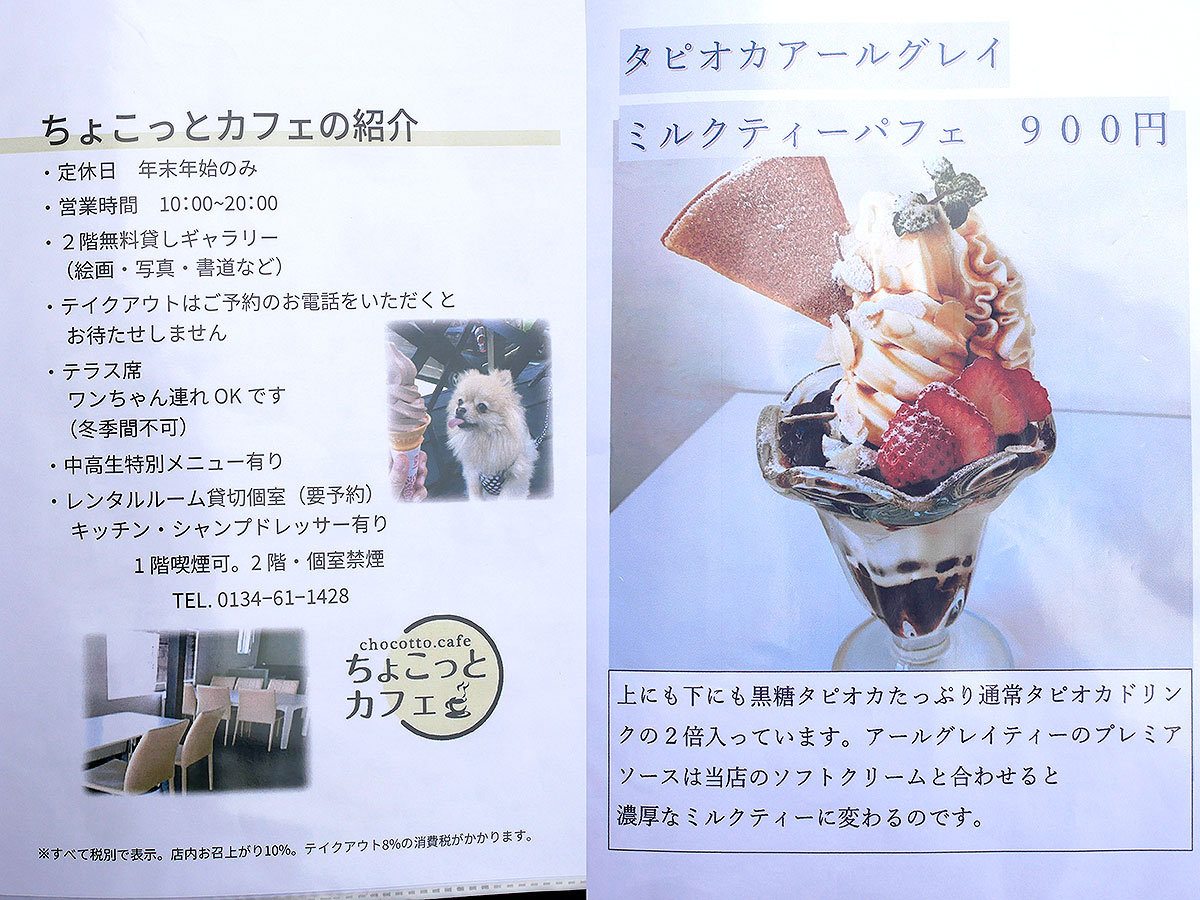 ちょこっとカフェの紹介
・定休日　年末年始のみ
・営業時間　10:00~20:00
・２階無料貸しギャラリー
（絵画・写真・書道など）
・テイクアウトはご予約のお電話をいただくと
お待たせしません
・テラス席
ワンちゃん連れ OK です
（冬季間不可）
・中高生特別メニュー有り
・レンタルルーム貸切個室（要予約）
キッチン・シャンプドレッサー有り
１階喫煙可。２階・個室禁煙
TEL. 0134-61-1428
chocotto.cafe
ちょこっと
カフェ
※すべて税別で表示。店内お召上がり10%。テイクアウト8%の消費税がかかります。
タピオカアールグレイ
ミルクティーパフェ　９００円
上にも下にも黒糖タピオカたっぷり通常タピオカドリン
クの２倍入っています。アールグレイティーのプレミア
ソースは当店のソフトクリームと合わせると
濃厚なミルクティーに変わるのです。